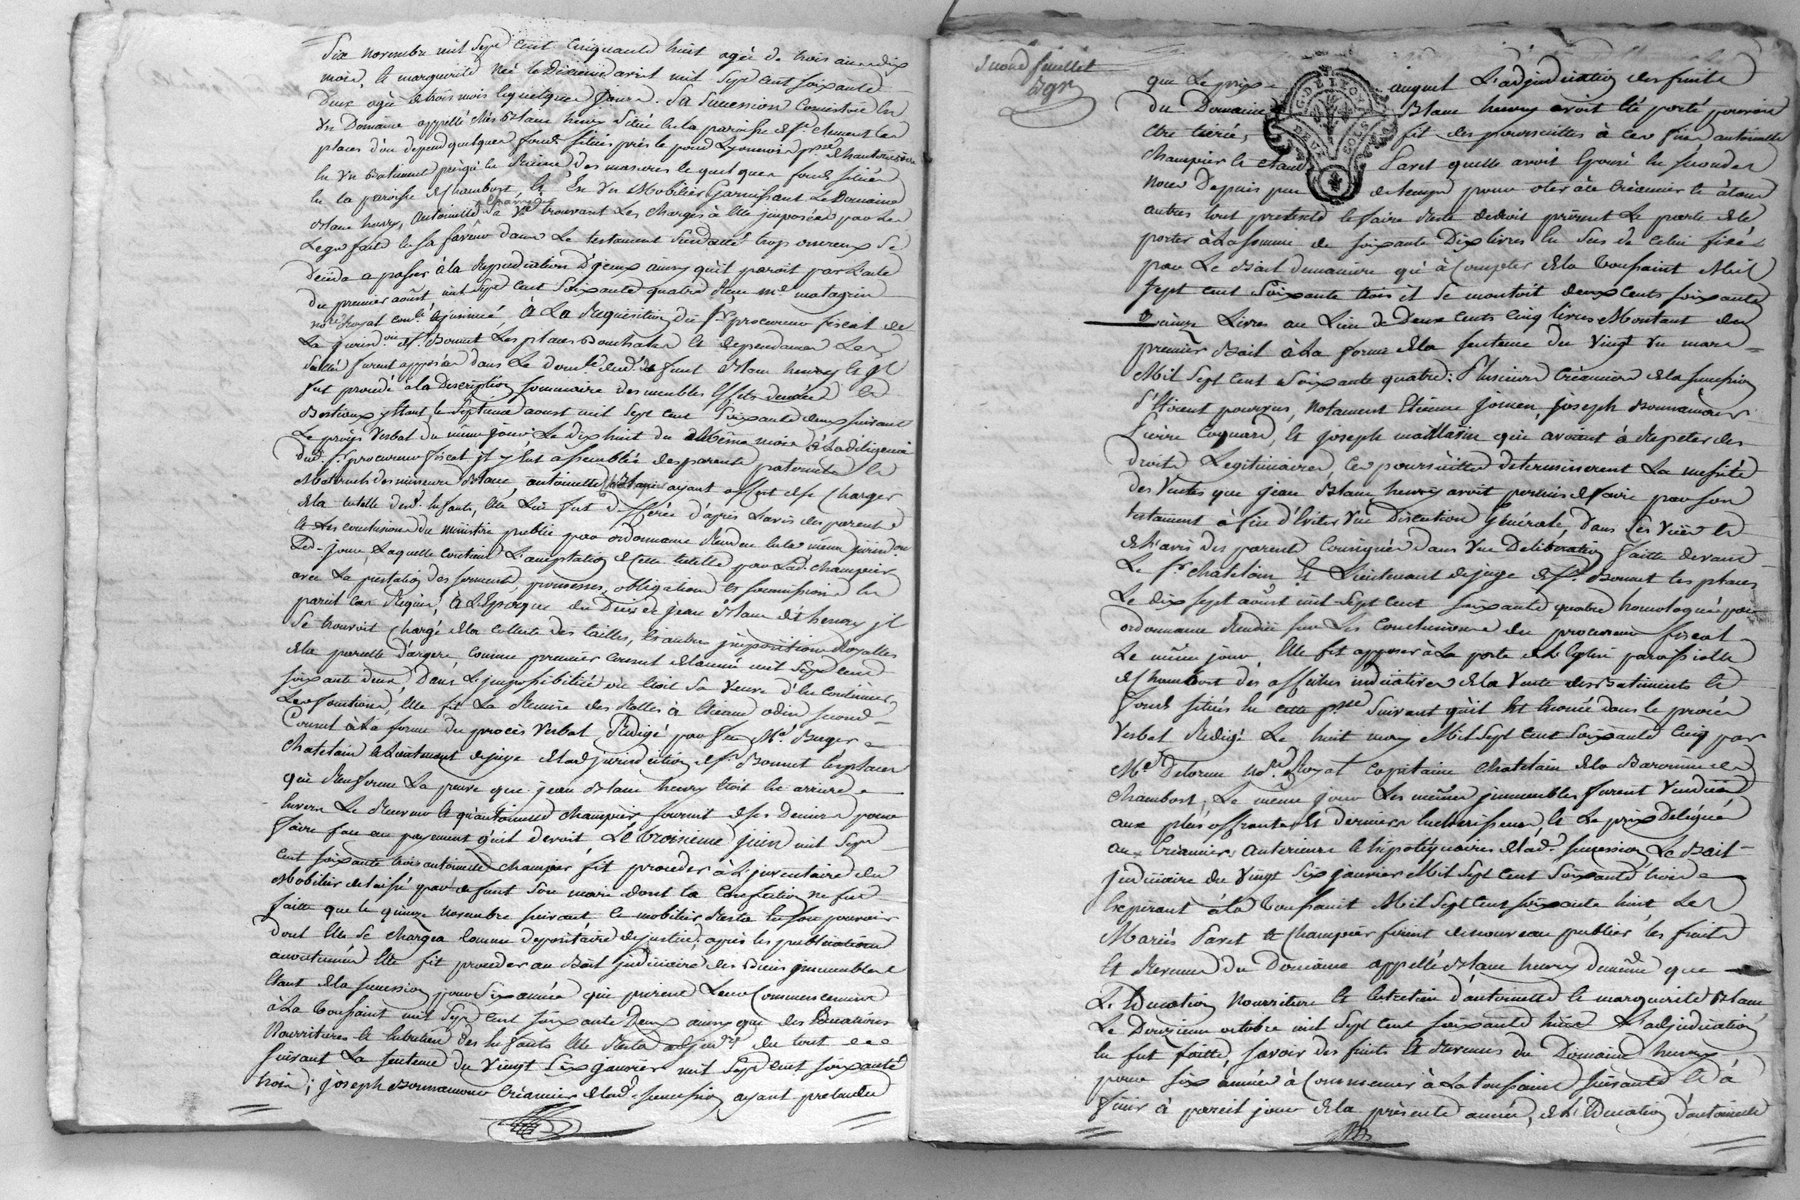 Six novembre mil Sept Cent Cinquante huit agée de trois ans dix
mois, et marguerite Née le dixieme avril mil Sept Cent Soixante
Deux agée de trois mois et quelques jours. Sa Succession Consistoit en
un Domaine appellé chés Blanc henry Situé en la paroisse de St. Clement les
places d'ou dependent quelques fonds Situés près le pond Lyonnois psse. de chantereine
en un Batiment presqu'en Ruine des masures et quelques fonds Situés
en la paroisse de Chambost, Et En un Mobilier Garnissant Le Domaine
Blanc henry, antoinette Champier Se Ve. trouvant Les charges à elle imposées par Le
Legs fait en Sa faveur dans Le testament Susdaté trop onereux Se
decida a passer à la Repudiation d'iceux ainsy qu'il paroit par L'acte
du premier août mil Sept cent Soixante quatre Reçu Me. matagrin
nore. Royal conle. à joursieu à La Requisition du Sr. procureur fiscal de
La jurisdon. de St. Bonnet Les places Bouchalas et dependances Les
Scellés furent apposés dans Le domle. dud. defunt Blanc henry et jl
fut procedé à la Description Sommaire des meubles Effets denrées et
Bestiaux y Etant, le Septieme aoust mil Sept Cent Soixante deux Suivant
Le procès Verbal du même jour Le dix huit du Même mois à La diligence
dud. Sr. procureur fiscal jl y eut assemblée des parents paternels et
Maternels des mineures Blanc antoinette Champier ayant offert de se Charger
de la tutelle desd. Enfants, elle Lui fut deferée d'après L'avis des parents
et Les conclusions du ministre public par ordonnance Rendue en la même jurisdon.
Led. jour, Laquelle contient L'acceptation de cette tutelle par Lad. champier
avec La prestation des Serments, promesses, obligations et Soumissions en
pareil cas Requis, à L'Epoque du Déces de jean Blanc dit henry jl
Se trouvoit Chargé de la collecte des tailles, et autres jmpositions Royalles
de la parcelle d'argere comme premier consul de l'année mil Sept Cent
Soixante deux, Dans L'jmpossibilité ou Etoit Sa Veuve d'en Continuer
Les fonctions, elle fit La Remise des Rolles à Etienne odin Second
Consul à La forme du procès Verbal Redigé par feu Me. Burger
Chatelain et Lieutenant de juge de lad. jurisdiction de St. Bonnet les places
qui Renferme La preuve que jean Blanc henry Etoit En arriere
Envers Le Receveur et qu'antoinette Champier fournit des Deniers pour
faire face au payement qu'il devoit Le troisieme juin mil Sept
Cent Soixante trois antoinette champier fit proceder à L'jnventaire du
Mobilier delaissé par defunt Son mari dont la Confection ne fut
faitte que le quinze novembre Suivant le mobilier Resta en Son pouvoir
dont elle Se chargea comme depositaire de justice, après les publications
accoutumées elle fit proceder au Bail judiciaire des Biens jmmeubles
Etant de la Succession pour Six années qui prirent Leur Commencement
à La Toussaint mil Sept Cent Soixante Deux ainsy que des Educations
Nourritures et Entretien des Enfants elle Resta adjudre. du tout
Suivant La Sentence du Vingt Six janvier mil Sept Cent Soixante
trois; joseph Bonnamour Créancier de lad. Succession ayant pretendu
Second feuillet
que Le prix auquel L'adjudication des fruits
du Domaine Blanc henry avoit été porté pouvoit
Etre tiercé, fit des poursuittes à ces fins antoinette
Champier et claude Paret qu'elle avoit Epousé en Secondes
Noces Depuis peu de temps pour oter à ce Créancier et à tous
autres tout pretexte et faire Reste de droit prirent Le parti de le
porter à La Somme de Soixante Dix livres en Sus de Celui fixé
par Le Bail de maniere qu'à Compter de la Toussaint Mil
Sept Cent Soixante trois il Se montoit deux cents Soixante
quinze Livres au Lieu de Deux cents cinq livres Montant du
premier Bail à La forme de la Sentence du Vingt un mars
Mil Sept Cent Soixante quatre: Plusieurs Créanciers de la Succession
S'Etoient pourvus, Notament Etienne jomen, joseph Bonnamour
Pierre Coquard, et joseph maillavin qui avoient à Repeter des
droits Legitimaires, Les poursuittes determinerent La necessité
des Ventes que jean Blanc henry avoit permis de faire par Son
testament à fin d'Eviter Une Discution Générale, dans Ces Vües et
de L'avis des parents Consignés Dans Une Deliberation faitte devant
Le Sr. chatelain et Lieutenant de juge de St. Bonnet les places
Le dix Sept août mil Sept Cent Soixante quatre homologuée par
ordonnance Rendue Sur Les Conclusions du procureur fiscal
Le même jour, elle fit apposer à La porte de L'Eglise paroissialle
de Chambost des affiches indicatives de la Vente des Batiments et
fonds Situés En cette psse. Suivant qu'il Est Enoncé dans le procés
Verbal Redigé Le huit may Mil Sept Cent Soixante Cinq par
Me. Delorme nore. Royal Capitaine Chatelain de la Baronnie de
Chambost, Le même jour Les mêmes jmmeubles furent Vendus
aux plus offrants et derniers Encherisseurs et Le prix Delegué
aux Créanciers anterieurs et hipotequaires de lad. Succession Le Bail
judiciaire du Vingt Six janvier Mil Sept Cent Soixante trois
Expirant à La Toussaint Mil Sept Cent Soixante huit Les
Mariés Paret et Champier firent de nouveau publier les fruits
Et Revenus du Domaine appellé Blanc henry de même que
L'Education nourriture et Entretien d'antoinette et marguerite Blanc
Le Deuzieme octobre mil Sept Cent Soixante huit L'adjudication
En fut faitte, Savoir des fruits Et Revenus du Domaine henry
pour Six années à Commencer à La toussaint Suivante et à
finir à pareil jour de la présente année, de L'Education d'antoinette